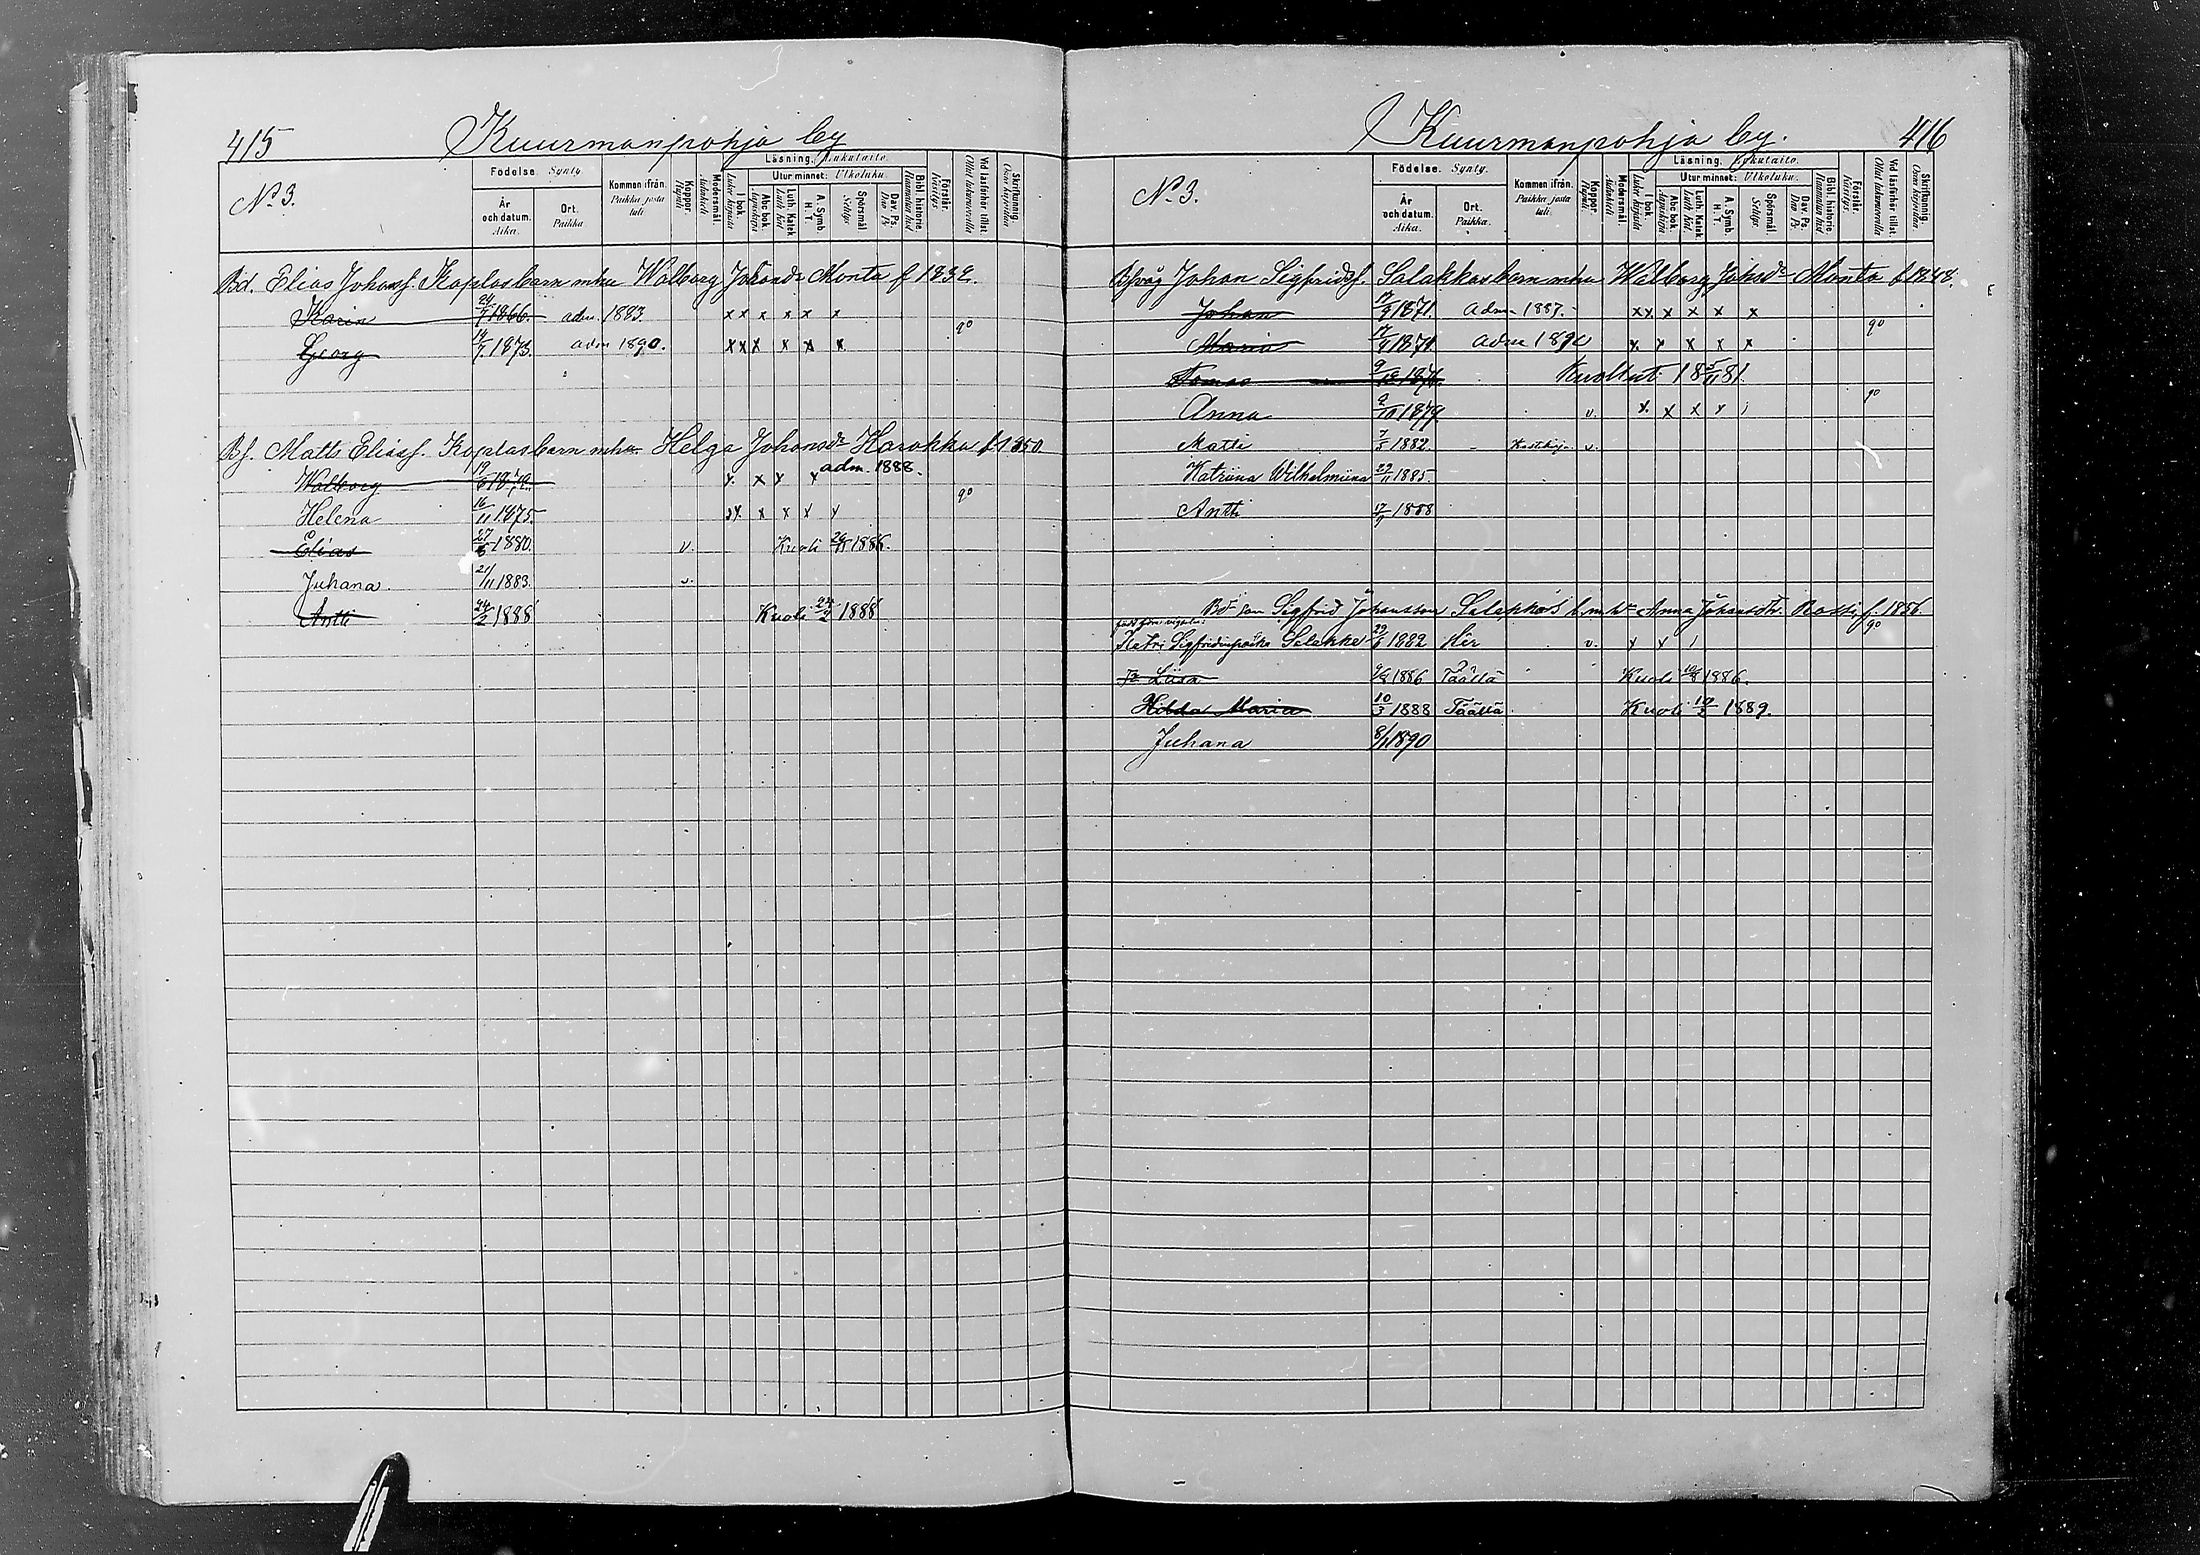 415
Kuurmanpohja by
No 3.
Födelse. Synty.
År och datum. Aika.
Ort. Paikka
Kommen ifrån. Paikka josta tuli.
Koppor. Rupuli
Modersmål. Äidinkieli
Läsning. Lukutaito.
I bok. Lukee kirjasta
Utur minnet: Ulkoluku.
Abc bok. Aapiskirja
Luth. Katek. Luth. kat
A. Symb. H. T.
Spörsmål. Selitys
Dav. Ps. Dav. Ps.
Bibl. historie. Raamatun hist
Förstår. Käsitys.
Vid läsförhör tillst. Ollut lukukuulustelulla
Skriftkunnig. Osaa kirjoittaa
Bd. Elias Johanss. Koplas barn m hu Walborg Johansdr Monta f 1832.
Karin 24/7 1866. adm. 1883. x x x x x x
Georg 14/7 1873. adm 1890. x x x x x x 90
Bs. Matts Eliass. Koplas barn m hu Helga Johansdr Harokka f 1850
Walborg 19/6 1872. x x x x adm. 1888.
Helena 16/11 1875. x x x x x 90
Elias 27/6 1880. v. Kuoli 1886.
Juhana. 21/11 1883. v.
Antti 24/2 1888 Kuoli 1888
416
Kuurmanpohja by.
No 3.
Födelse. Synty.
År och datum. Aika.
Ort. Paikka.
Kommen ifrån. Paikka josta tuli.
Koppor. Rupuli
Modersmål. Äidinkieli
Läsning. Lukutaito.
I bok. Lukee kirjasta
Utur minnet: Ulkoluku.
Abc bok. Aapiskirja
Luth. Katek. Luth. kat.
A. Symb. H. T.
Spörsmål. Selitys
Dav. Ps. Dav. Ps.
Bibl. historie. Raamatun hist
Förstår. Käsitys.
Vid läsförhör tillst. Ollut lukukuulustelulla
Skriftkunnig. Osaa kirjoittaa
Bsvåg Johan Sigfridss. Salakkas barn m hu Walborg Johsdr Monta f 1848.
Johan 1871. Adm. 1887. x x x x x x
Maria 1874. Adm 1892 x x x x x 90
Tomas Kuollut 1881.
Anna 9/10 1879 v. x x x x 90
Matti 7/5 1882. v.
Katriina Wilhelmiina 29/11 1885.
Antti 17/9 1888
Bd son Sigfrid Johansson Salakka's b. m. h. Anna Johansdtr. Rossi f. 1856
Petri Salakka 1882 Här v. x x 90
Liisa 1886 Täällä Kuoli 1886.
Hilda Maria 10/3 1888 Täällä Kuoli 1889.
Juhana 8/1 1890